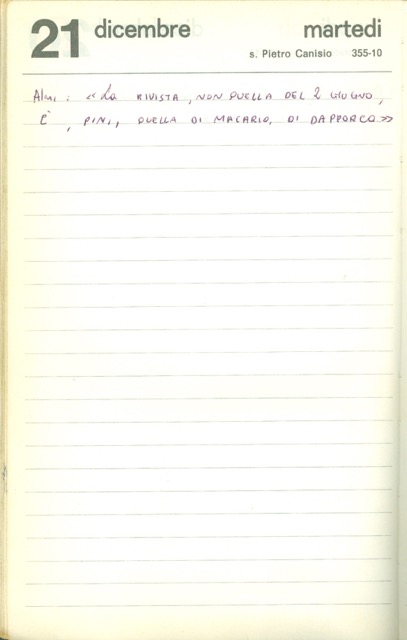 21 dicembre martedì
s. Pietro Canisio 355-10
: «La RIVISTA, NON QUELLA DEL 2 GIUGNO,
È, PINI, QUELLA DI MACARIO, DI DAPPORCO»